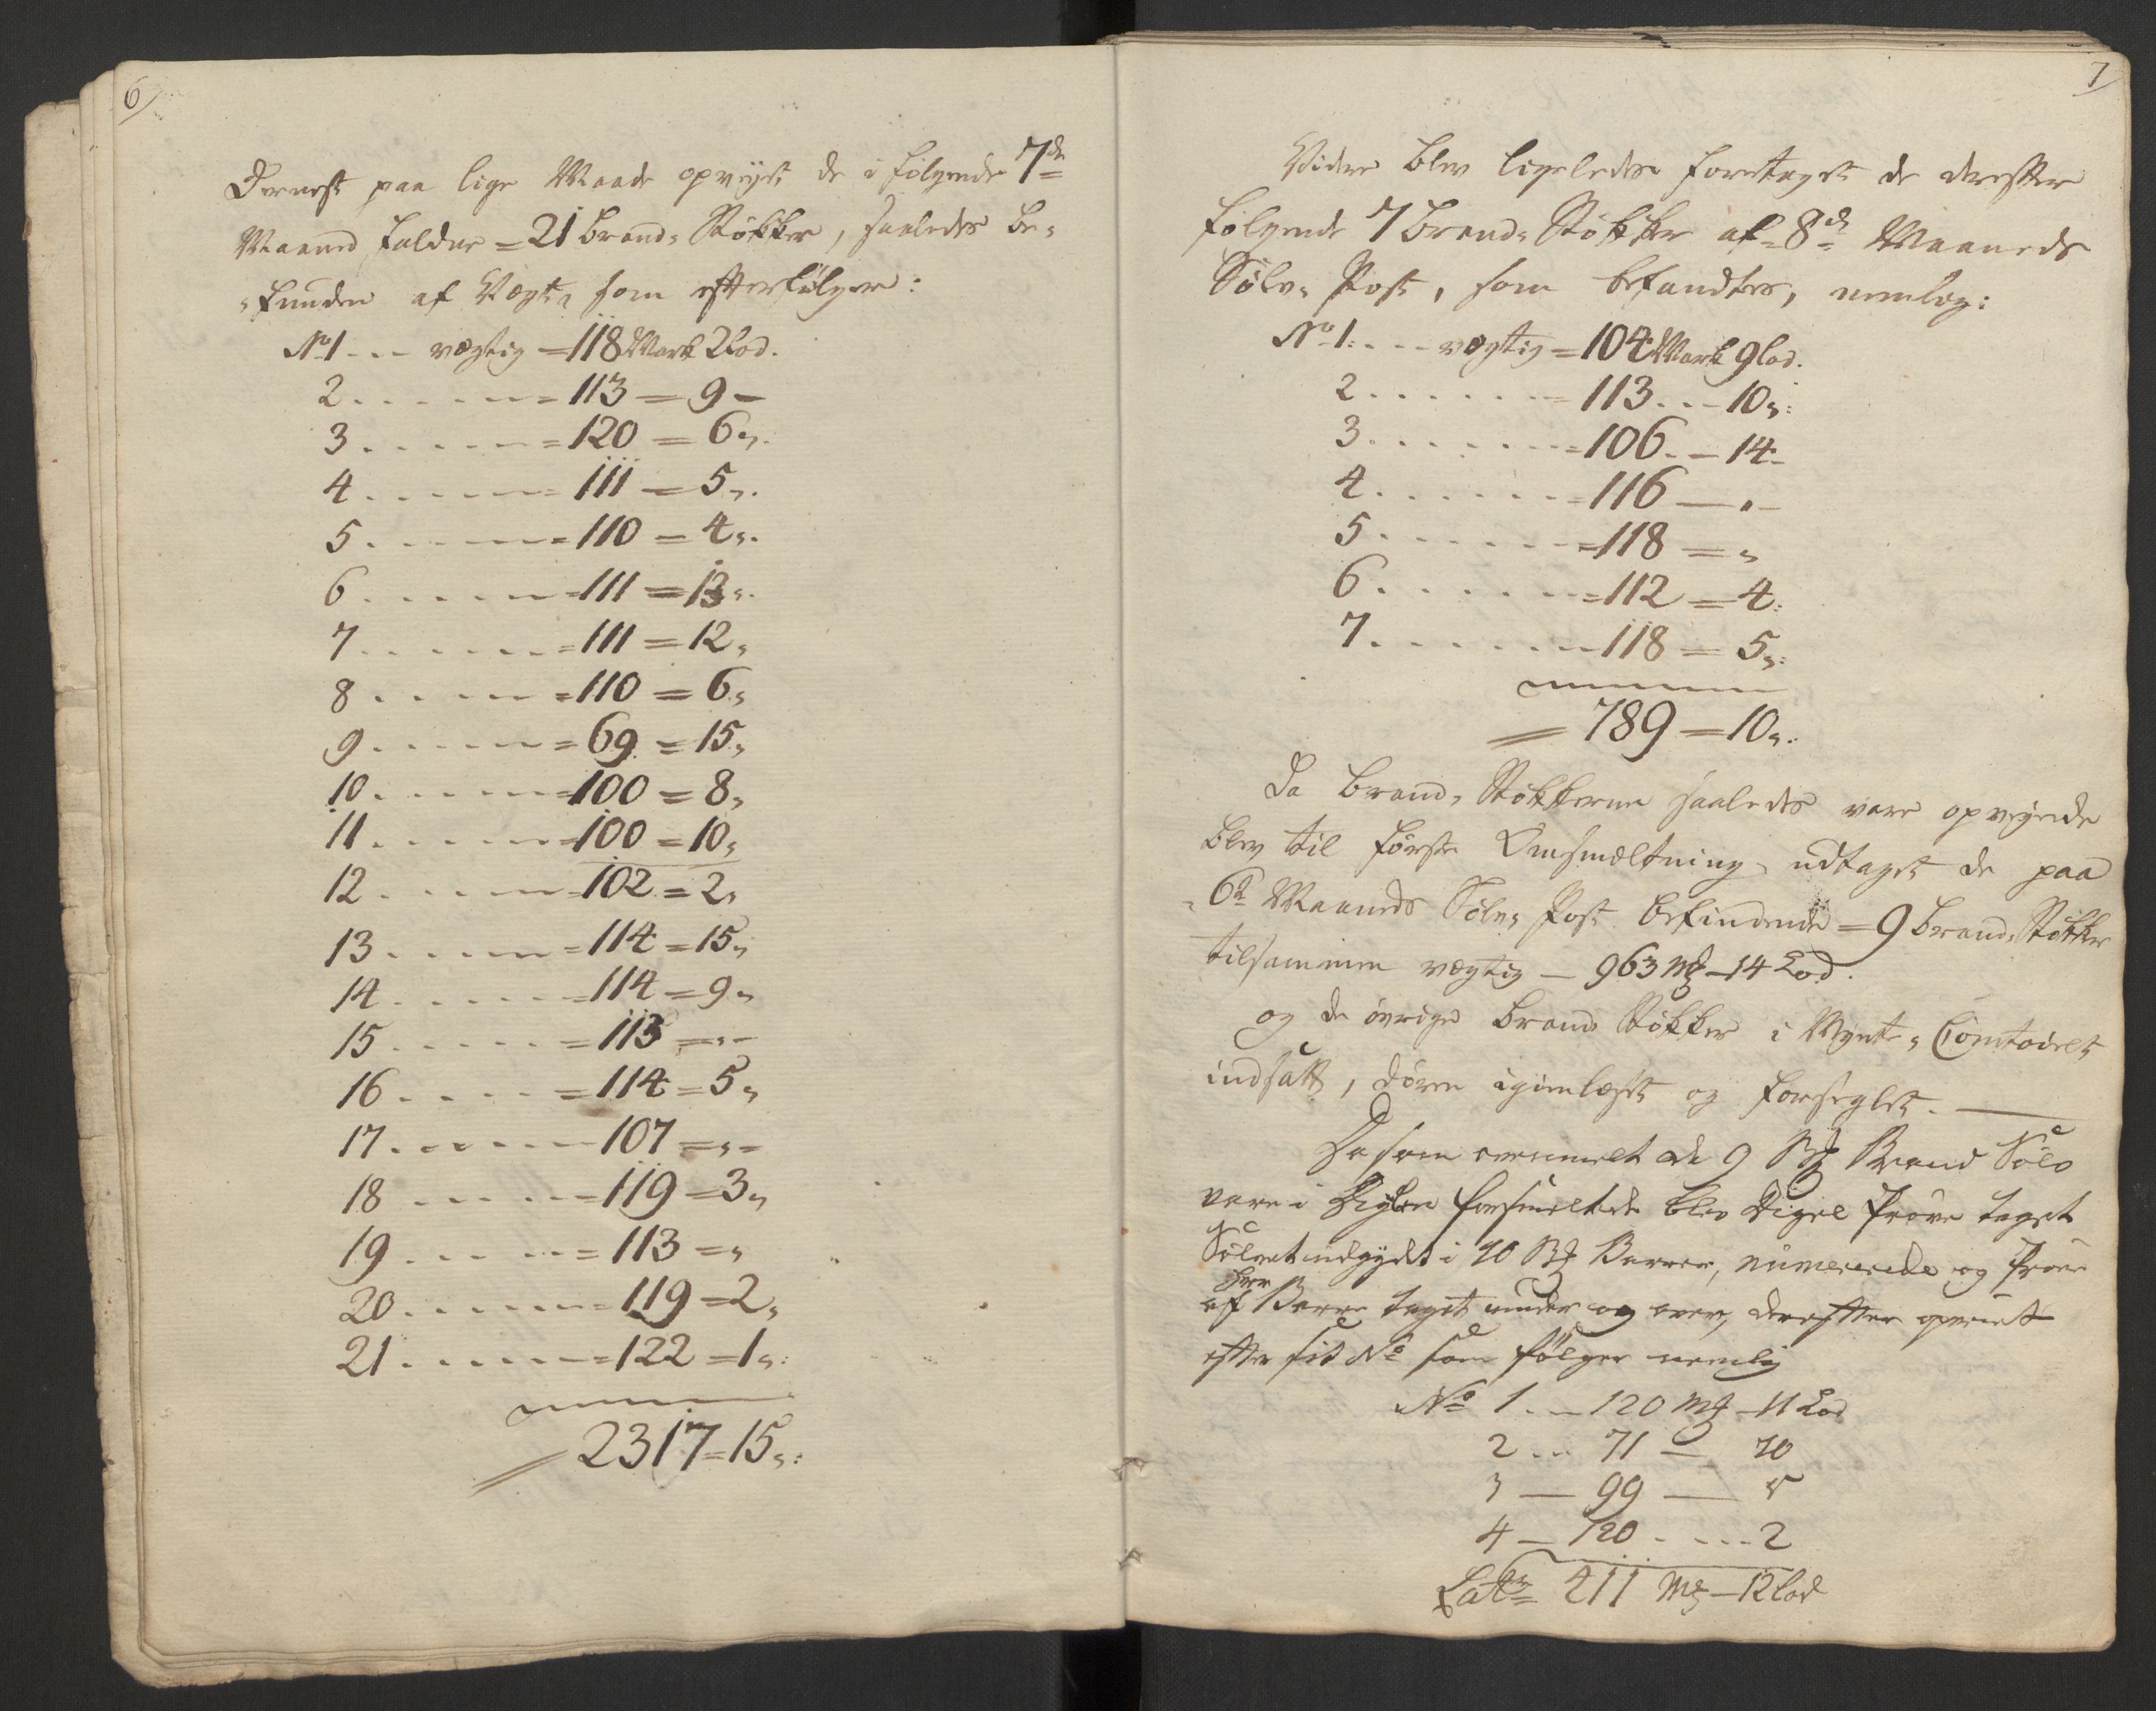 6)
Dernest paa lige Maade opvejet de i følgende 7de
Maaned faldne = 21 Brand-Støkker, saaledes be-
-funden af Vægt, som efterfølger:
No 1 --- vægtig = 118 Mark 2 Lod.
2 . . . . - - = 113 = 9 -
3 . . . . - - = 120 = 6 ".
4 . . . . - - = 111 = 5 ".
5 . . . . - - = 110 = 4 ".
6 . . . . - - = 111 = 13 ".
7 . . . . - - = 111 = 12 "
8 . . . . - - = 110 = 6 "
9 . . . . - - = 69 = 15 "
10 . . . . - - = 100 = 8 "
11 . . . . - - = 100 = 10 "
12 . . . . - - = 102 = 2 "
13 . . . . - - = 114 = 15 "
14 . . . . - - = 114 = 9 "
15 . . . . - - = 113 = " -
16 . . . . - - = 114 = 5 "
17 . . . . - - = 107 = " -
18 . . . . - - = 119 = 3 "
19 . . . . - - = 113 = "
20 . . . . - - = 119 = 2 "
21 . . . . - - = 122 = 1 ":
= 2317 = 15 ":
7)
Videre blev ligeledes foretaget de derefter
følgende 7 Brand-Støkker af 8de Maaneds
Sølv-Post, som befandtes, nemlog:
No 1 . . - - vægtig = 104 Mark 9 Lod.
2 . . . . . . - = 113 . . - 10 ":
3 . . . . . . - = 106 . - 14 -
4 . . . . . . - = 116 — " -
5 . . . . . . - = 118 = "
6 . . . . . . - = 112 = 4 :
7 . . . . . . - = 118 = 5 ":
= 789 = 10 ":
Da Brand-Støkkerne saaledes vare opvejede
blev til første Omsmæltning udtaget de paa
6te Maaneds Sølv-Post befindende = 9 Brand-Støkker
tilsammen vægtig — 963 Mk - 14 Lod.
og de øvrige Brand Støkker i Mynt-Comtoiret
indsatt, Døren igienlaast og forseglet. —
Da som de 9 St Brand Sølv
vare i Digelen forsmeltede blev Digel Prøve taget
Sølvet udgydet i 10 St Barrer, numererede og Prøve
af hver Barre taget under og over, derefter opveiet
efter sit No som følger nemlig
No 1 . . — 120 Mk — 11 Lod
2 . . . 71 — 10
3 — 99 — 5
4 — 120 . . . . 2
Latr 411 Mk — 12 Lod